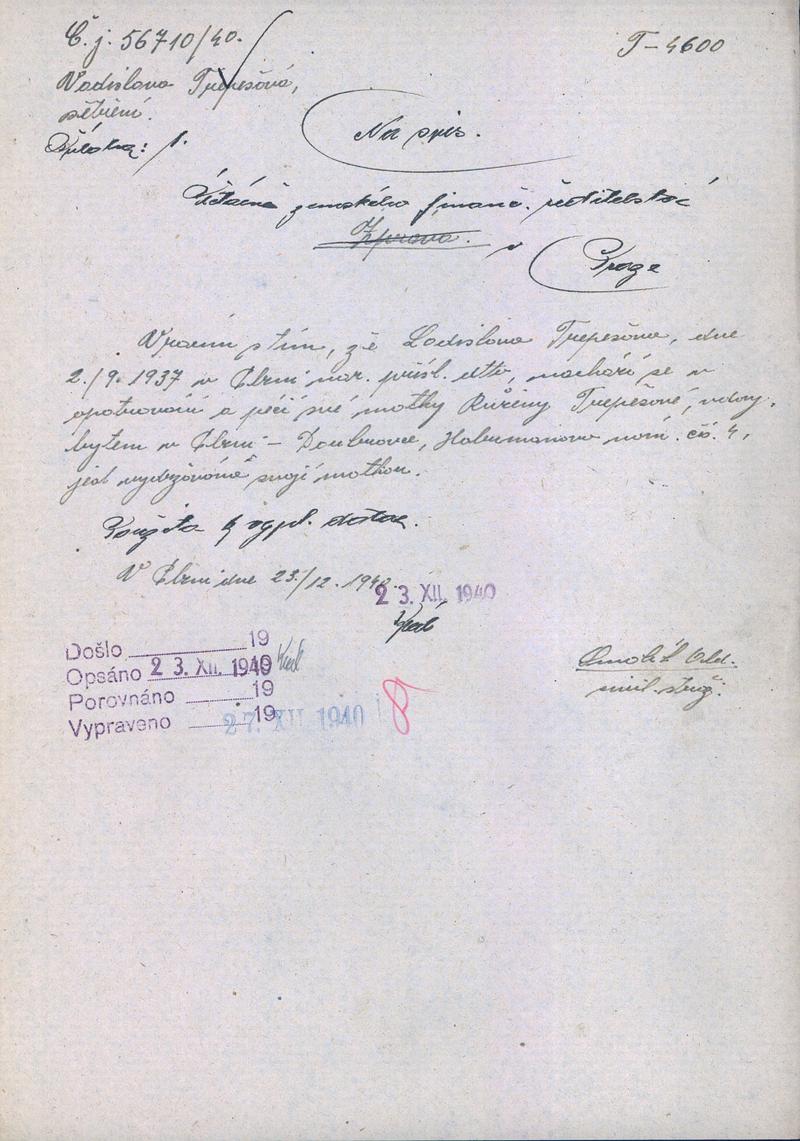 Č.j. 56710/40.
T-4600
Vladislava Trepešová,
šetření.
Příloha: 1.
Na spis.
Účtárně zemského finanč. ředitelství
Zpráva.
v
Praze
Vracím s tím, že Ladislava Trepešova, dne
2./9. 1937 v Plzni nar. přísl. dtto, nachází se v
opatrování a péči své matky Růženy Trepešové, vdovy,
bytem v Plzni - Doubravce, Habrmanovo nám. čís. 4,
jest vydržována svojí matkou.
V Plzni dne 23./12. 1940.
23. XII. 1940
Došlo 19
Opsáno 23. XII. 1940
Porovnáno 19
Vypraveno 19
27. XII 1940
Old.